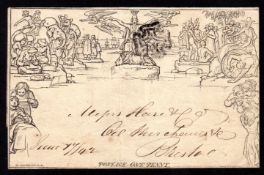 Messrs Hare & Co
Oil Merchants
Bristol
June 17/42
POSTAGE ONE PENNY.